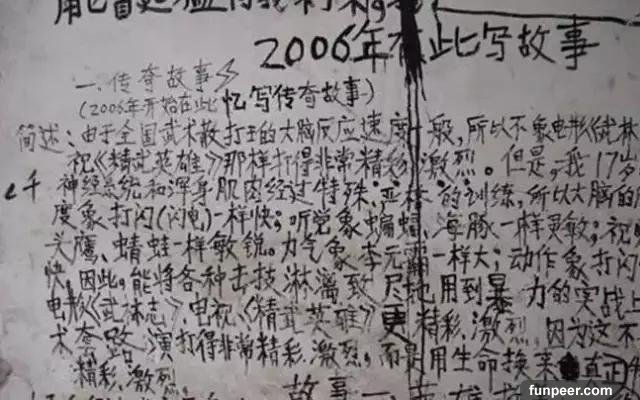 2006年在此写故事
一.传奇故事
(2006年开始在此忆写传奇故事)
简述:由于全国武术散打王的大脑反应速度一般,所以不象电影《武林
视《精武英雄》那样打得非常精彩激烈。但是,我17岁
神经系统和浑身肌肉经过特殊,严格的训练,所以大脑的
度象打闪(闪电)一样快;听觉象蝙蝠、海豚一样灵敏;视
头鹰、蜻蜓一样敏锐。力气象李元霸一样大;动作象打闪
快,因此,能将各种击技淋漓致尽地用到暴力的实战
电影《武林志》电视《精武英雄》更精彩.激烈.因为这不
术套路,演打得非常精彩.激烈,而是用生命换来真正
精彩.激烈.
故事一
funpeer.com